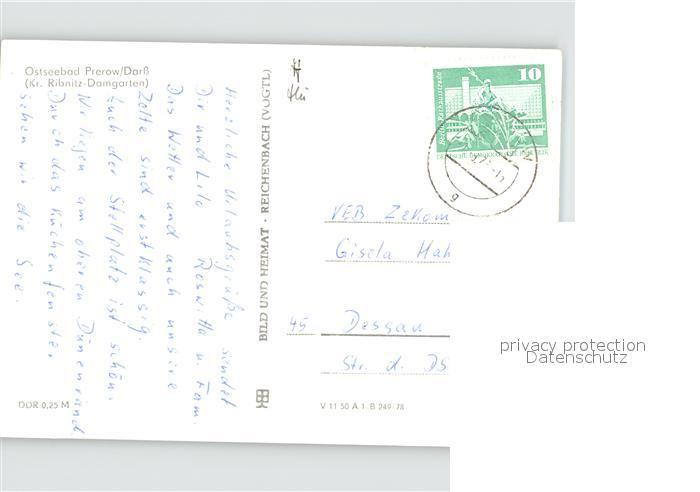 Ostseebad Prerow/Darß
(Kr. Ribnitz-Damgarten)
Herzliche Urlaubsgrüße sendet
Dir und Lilo Roswitha u. Fam.
Das Wetter und auch unsere
Zelte sind erstklassig.
Auch der Stellplatz ist schön.
Wir liegen am oberen Dünenrand.
Durch das Küchenfenster
sehen wir die See.
DDR 0,25 M
BILD UND HEIMAT · REICHENBACH (VOGTL)
V 11 50 A 1. B 249/78
10
Berlin, Rathausstraße
DEUTSCHE DEMOKRATISCHE REPUBLIK
g
VEB Zekom
Gisela Hah
45 Dessau
Str. d. DS
privacy protection
Datenschutz